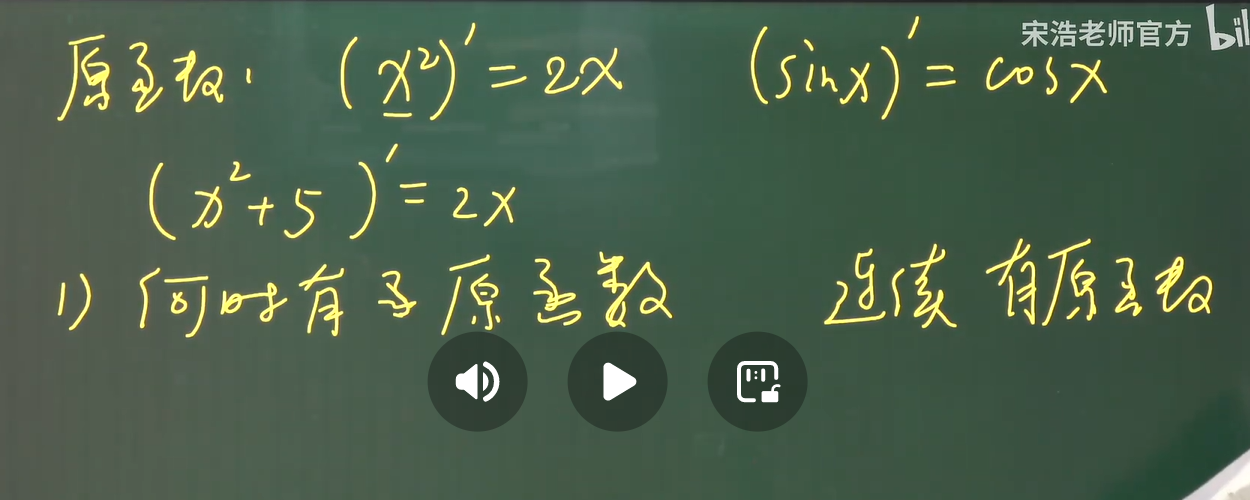 宋浩老师官方 bil
原函数: (x²)′ = 2x (sinx)′ = cosx
(x²+5)′ = 2x
1) 何时有了原函数 连续 有原函数